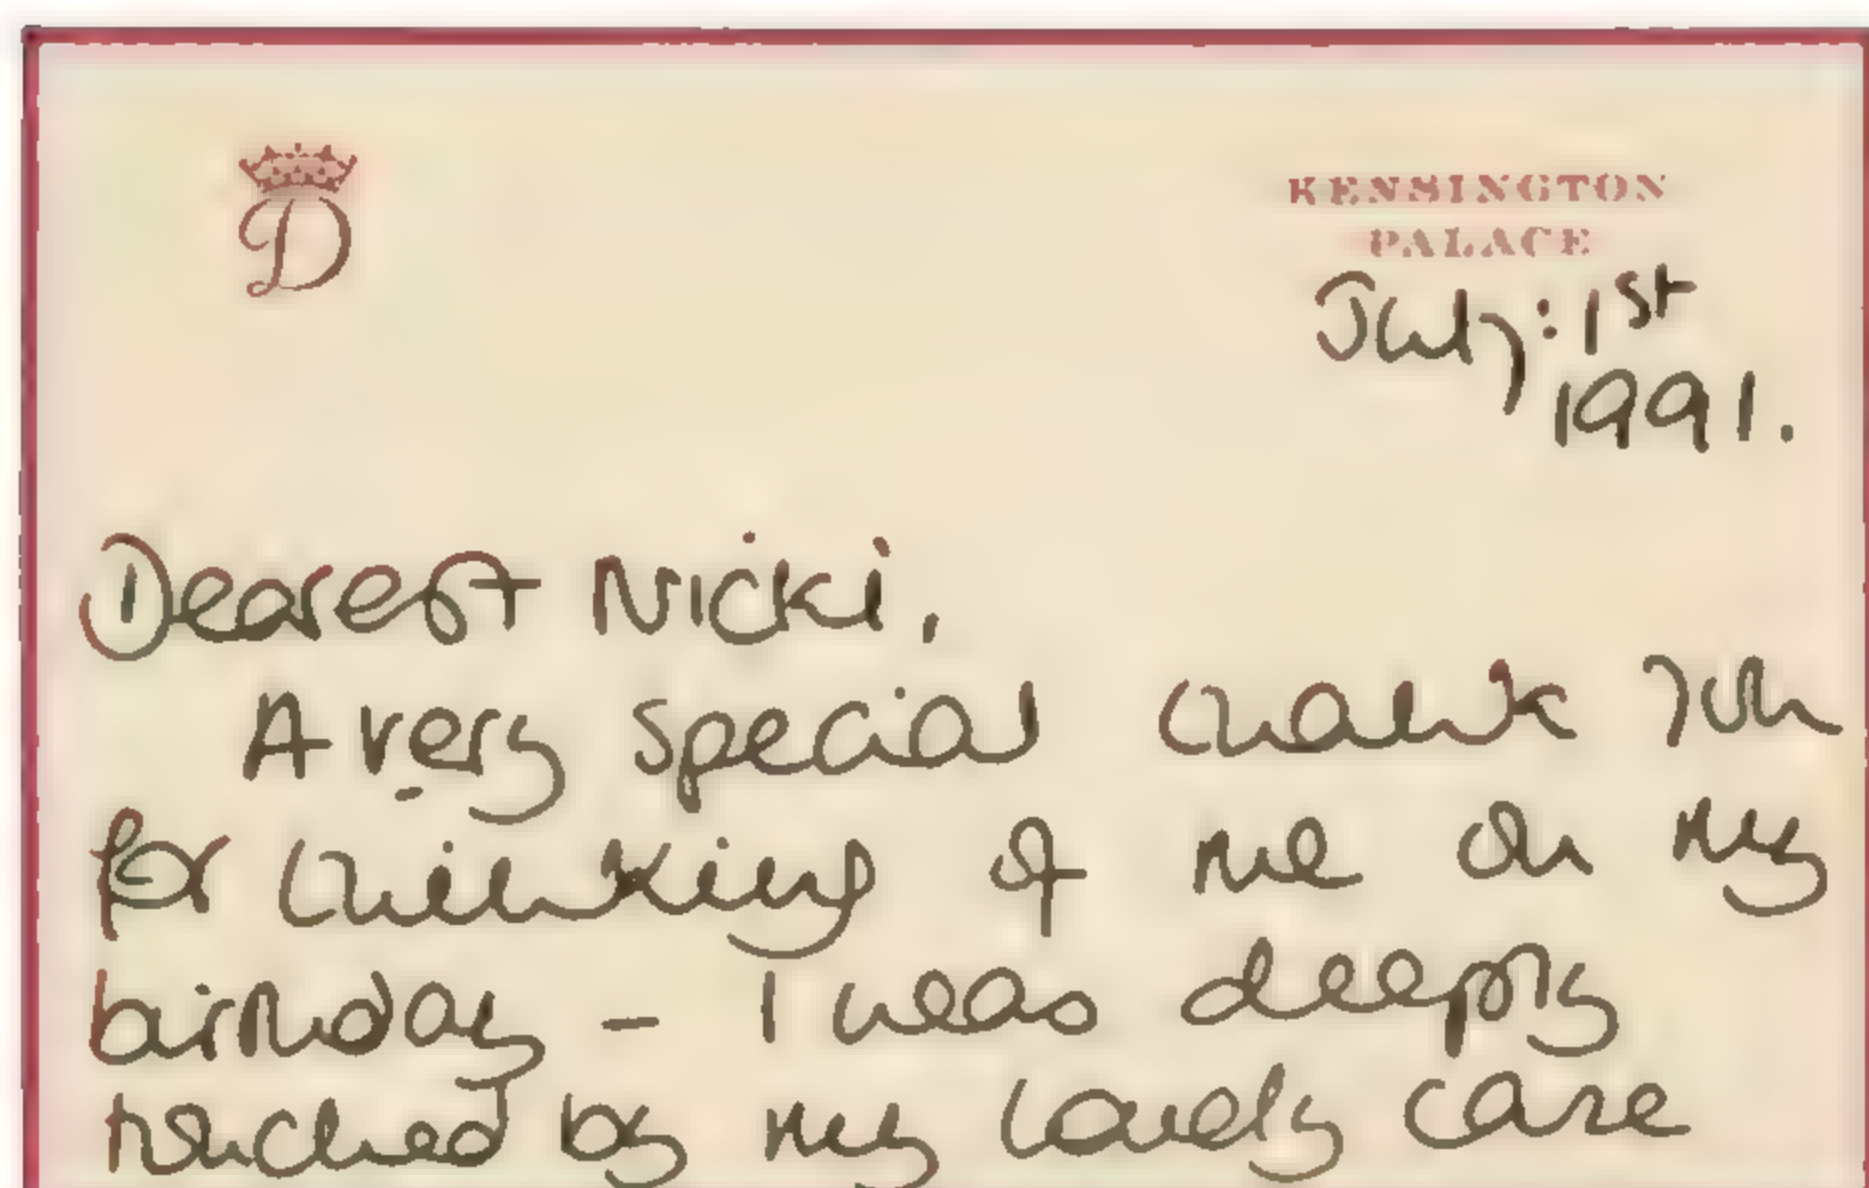 D
KENSINGTON
PALACE
July: 1st
1991.
Dearest Nicki,
A very special thank you
for thinking of me on my
birthday – I was deeply
touched by my lovely care